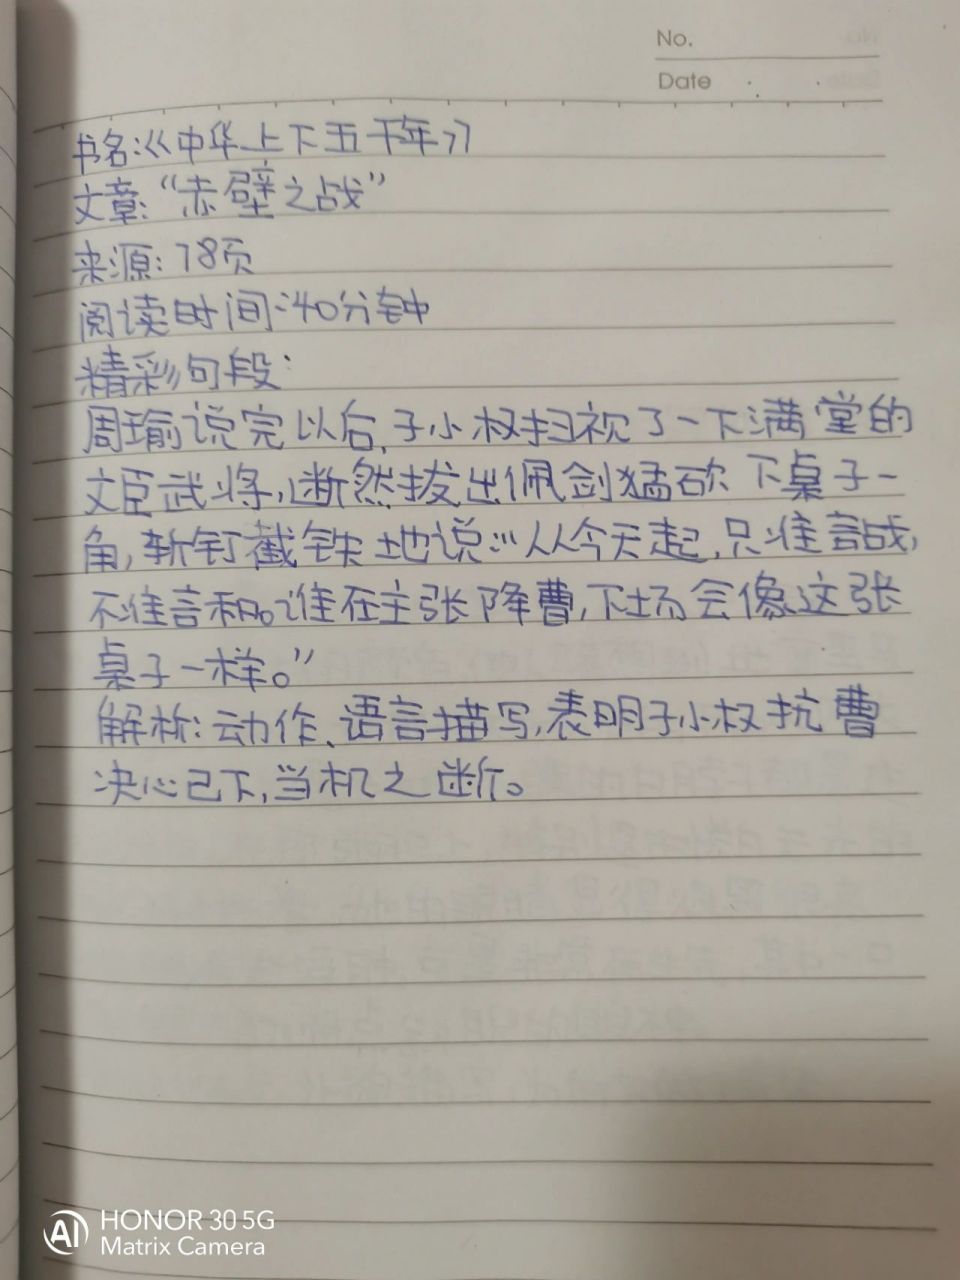 No.
Date
书名:《中华上下五千年》
文章:“赤壁之战”
来源:78页
阅读时间:40分钟
精彩句段:
周瑜说完以后,孙权扫视了一下满堂的
文臣武将,断然拔出佩剑猛砍下桌子一
角,斩钉截铁地说:“从今天起,只准言战,
不准言和。谁在主张降曹,下场会像这张
桌子一样。”
解析:动作、语言描写,表明孙权抗曹
决心已下,当机之断。
AI HONOR 30 5G
Matrix Camera